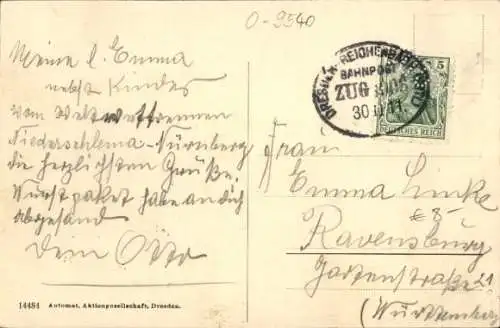 O-9540
Meine l. Emma
nebst Kinder
vom Wettrennen
Niederschlema-Nürnberg
die herzlichsten Grüße.
Wurstpaket habe an dich
abgesand
dein Otto
DRESDEN-REICHENBACH
BAHNPOST
ZUG
30 11
5
DEUTSCHES REICH
Frau
Emma Linke
€ 8-
Ravensburg
Gartenstraße 21
(Württemberg)
14484 Automat, Aktiengesellschaft, Dresden.